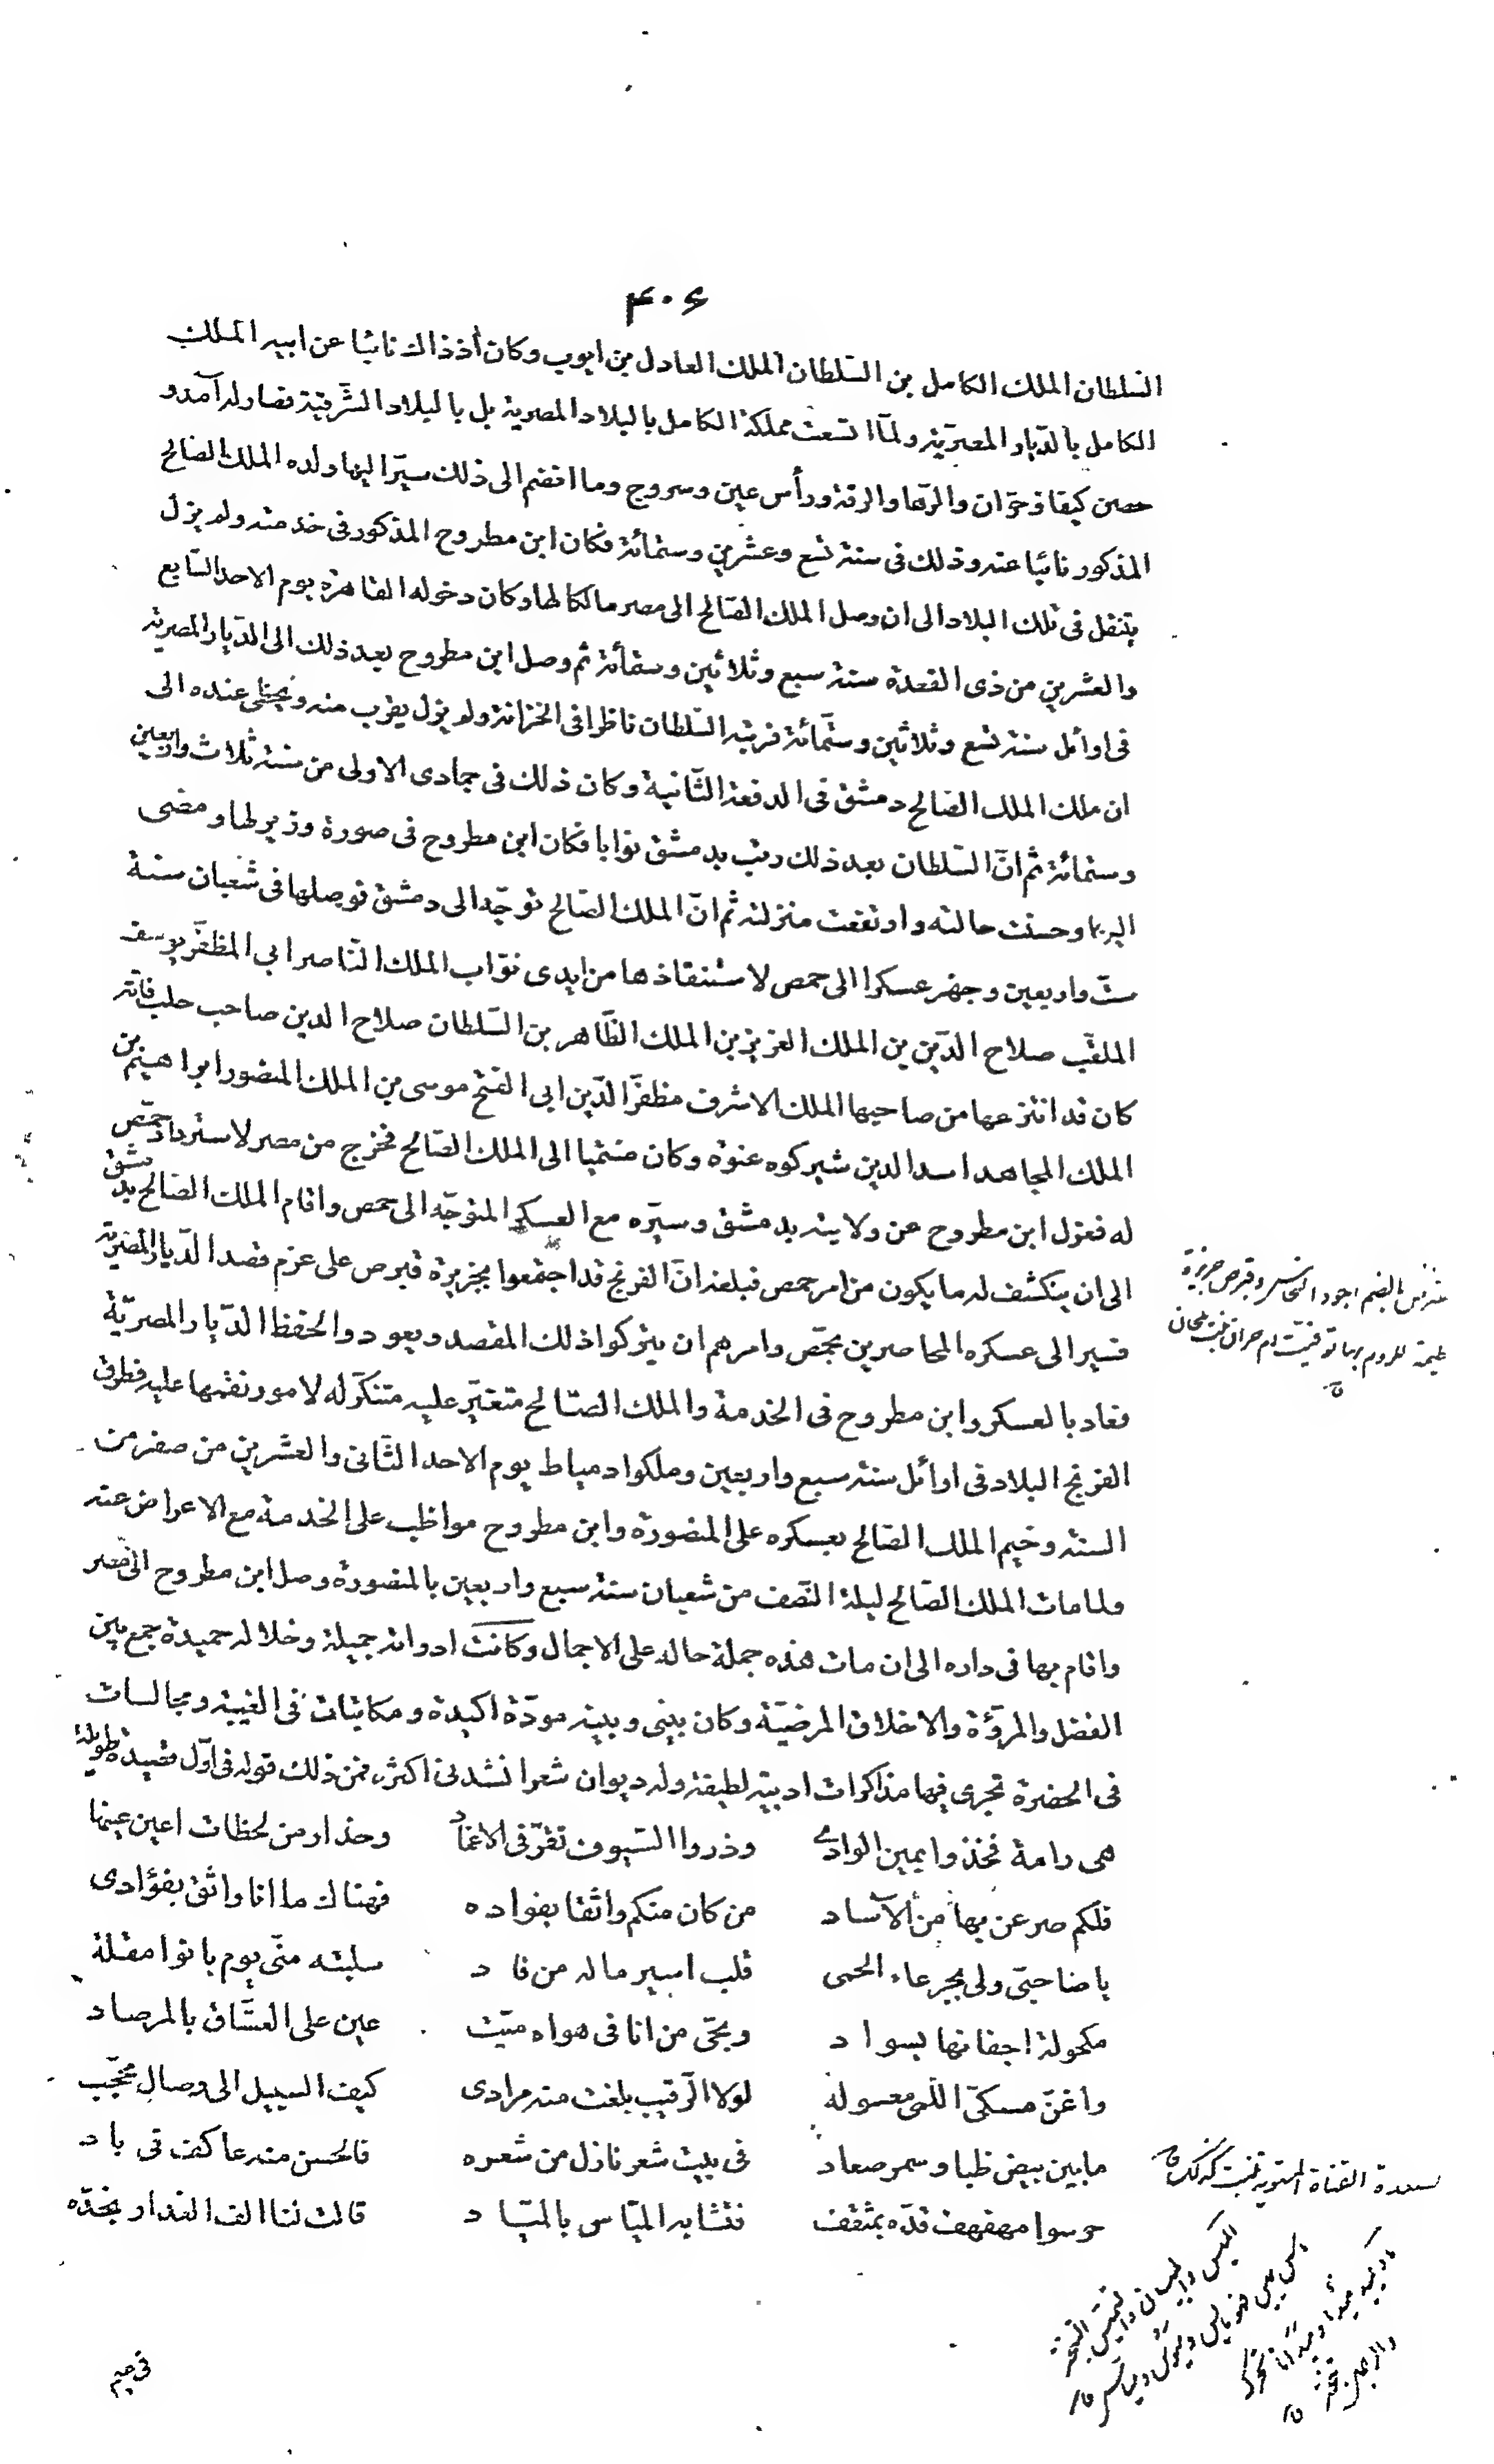 ۴۰۶
السلطان الملك الكامل بن السّلطان الملك العادل بن ايوب وكان أذذاك نائبا عن ابيه الملك
الكامل بالدّيار المصريّة ولمّا اتسعت مملكة الكامل بالبلاد المصرية بل بالبلاد الشّرقيّة فصار له آمد و
حصن كيفا وحرّان والرّها والرقة ورأس عين وسروج وما انضم الى ذلك سيّر اليها ولده الملك الصّالح
المذكور نائبا عنه وذلك فى سنة تسع وعشرين وستمائة فكان ابن مطروح المذكور فى خدمته ولم يزل
يتنقل فى تلك البلاد الى ان وصل الملك الصّالح الى مصر مالكا لها وكان دخوله القاهرة يوم الاحد السّابع
والعشرين من ذى القعدة سنة سبع وثلاثين وستمأئة ثم وصل ابن مطروح بعد ذلك الى الدّيار المصرية
فى اوائل سنة تسع وثلاثين وستّمائة فرتبه السّلطان ناظرا فى الخزانة ولم يزل يقرب منه ويحظى عنده الى
ان ملك الملك الصّالح دمشق فى الدفعة الثّانية وكان ذلك فى جمادى الاولى من سنة ثلاث واربعين
وستمائة ثم انّ السّلطان بعد ذلك رتب بدمشق نوابا فكان ابن مطروح فى صورة وزير لها ومضى
اليها وحسنت حالته وارتفعت منزلته ثم انّ الملك الصّالح توجّه الى دمشق فوصلها فى شعبان سنة
ستّ واربعين وجهز عسكرا الى حمص لاستنقاذها من ايدى نوّاب الملك النّاصر ابي المظفّر يوسف
الملقّب صلاح الدّين بن الملك العزيز بن الملك الظّاهر بن السّلطان صلاح الدين صاحب حلب فانّه
كان قد انتزعها من صاحبها الملك الاشرف مظفّر الدّين ابى الفتح موسى بن الملك المنصور ابراهيم بن
الملك المجاهد اسد الدين شيركوه عنوة وكان منتميا الى الملك الصّالح فخرج من مصر لاسترداد حمص
له فعزل ابن مطروح عن ولايته بدمشق وسيّره مع العسكر المتوجّه الى حمص واقام الملك الصّالح بدمشق
الى ان ينكشف له ما يكون من امر حمص فبلغه انّ الفرنج قد اجتمعوا بجزيرة قبرص على عزم قصد الدّيار المصرية
فسير الى عسكره المحاصرين بحمّص وامرهم ان يتركوا ذلك المقصد ويعودوا لحفظ الدّيار المصريّة
فعاد بالعسكر وابن مطروح فى الخدمة والملك الصّالح متغيّر عليه متنكّر له لامور نقمها عليه فطرق
الفرنج البلاد فى اوائل سنة سبع واربعين وملكوا دمياط يوم الاحد الثّانى والعشرين من صفر من
السنة وخيم الملك الصّالح بعسكره على المنصورة وابن مطروح مواظب على الخدمة مع الاعراض عنه
ولما مات الملك الصّالح ليلة النّصف من شعبان سنة سبع واربعين بالمنصورة وصل ابن مطروح الى مصر
واقام بها فى داره الى ان مات هذه جملة حاله على الاجمال وكانت ادواته جميلة وخلاله حميدة جمع بين
الفضل والمروّة والاخلاق المرضيّة وكان بينى وبينه مودّة اكيدة ومكاتبات فى الغيبة ومجالسات
فى الحضرة تجرى فيها مذاكرات ادبيّة لطيفة وله ديوان شعر انشدنى اكثره فمن ذلك قوله فى اوّل قصيدة طويلة
هى رامة فخذوا يمين الوادى وذروا السّيوف تقرّ فى الاغماد وحذار من لحظات اعين عينها
فلكم صرعن بها من الآساد من كان منكم واثقا بفواده فهناك ما انا واثق بفؤادى
يا صاحبىّ ولى بجرعاء الحمى قلب اسير ما له من فاد سلبته منّى يوم بانوا مقلة
مكحولة اجفانها بسواد وبحىّ من انا فى هواه ميّت عين على العشّاق بالمرصاد
واغنّ مسكىّ اللّمى معسوله لولا الرّقيب بلغت منه مرادى كيف السبيل الى وصال محجّب
ما بين بيض ظبا وسمر صعاد فى بيت شعر نازل من شعره فالحسن منه عاكف فى باد
حرسوا مهفهف قدّه بمثقف فتشابه الميّاس بالميّاد قالت لنا الف العذار بخدّه
فى ميم
بالضم اجود النحاس وقبرص جزيرة
عظيمة للروم بها توفيت ام حرام بنت ملحان
صعدة القناة المستوية تنبت كذلك